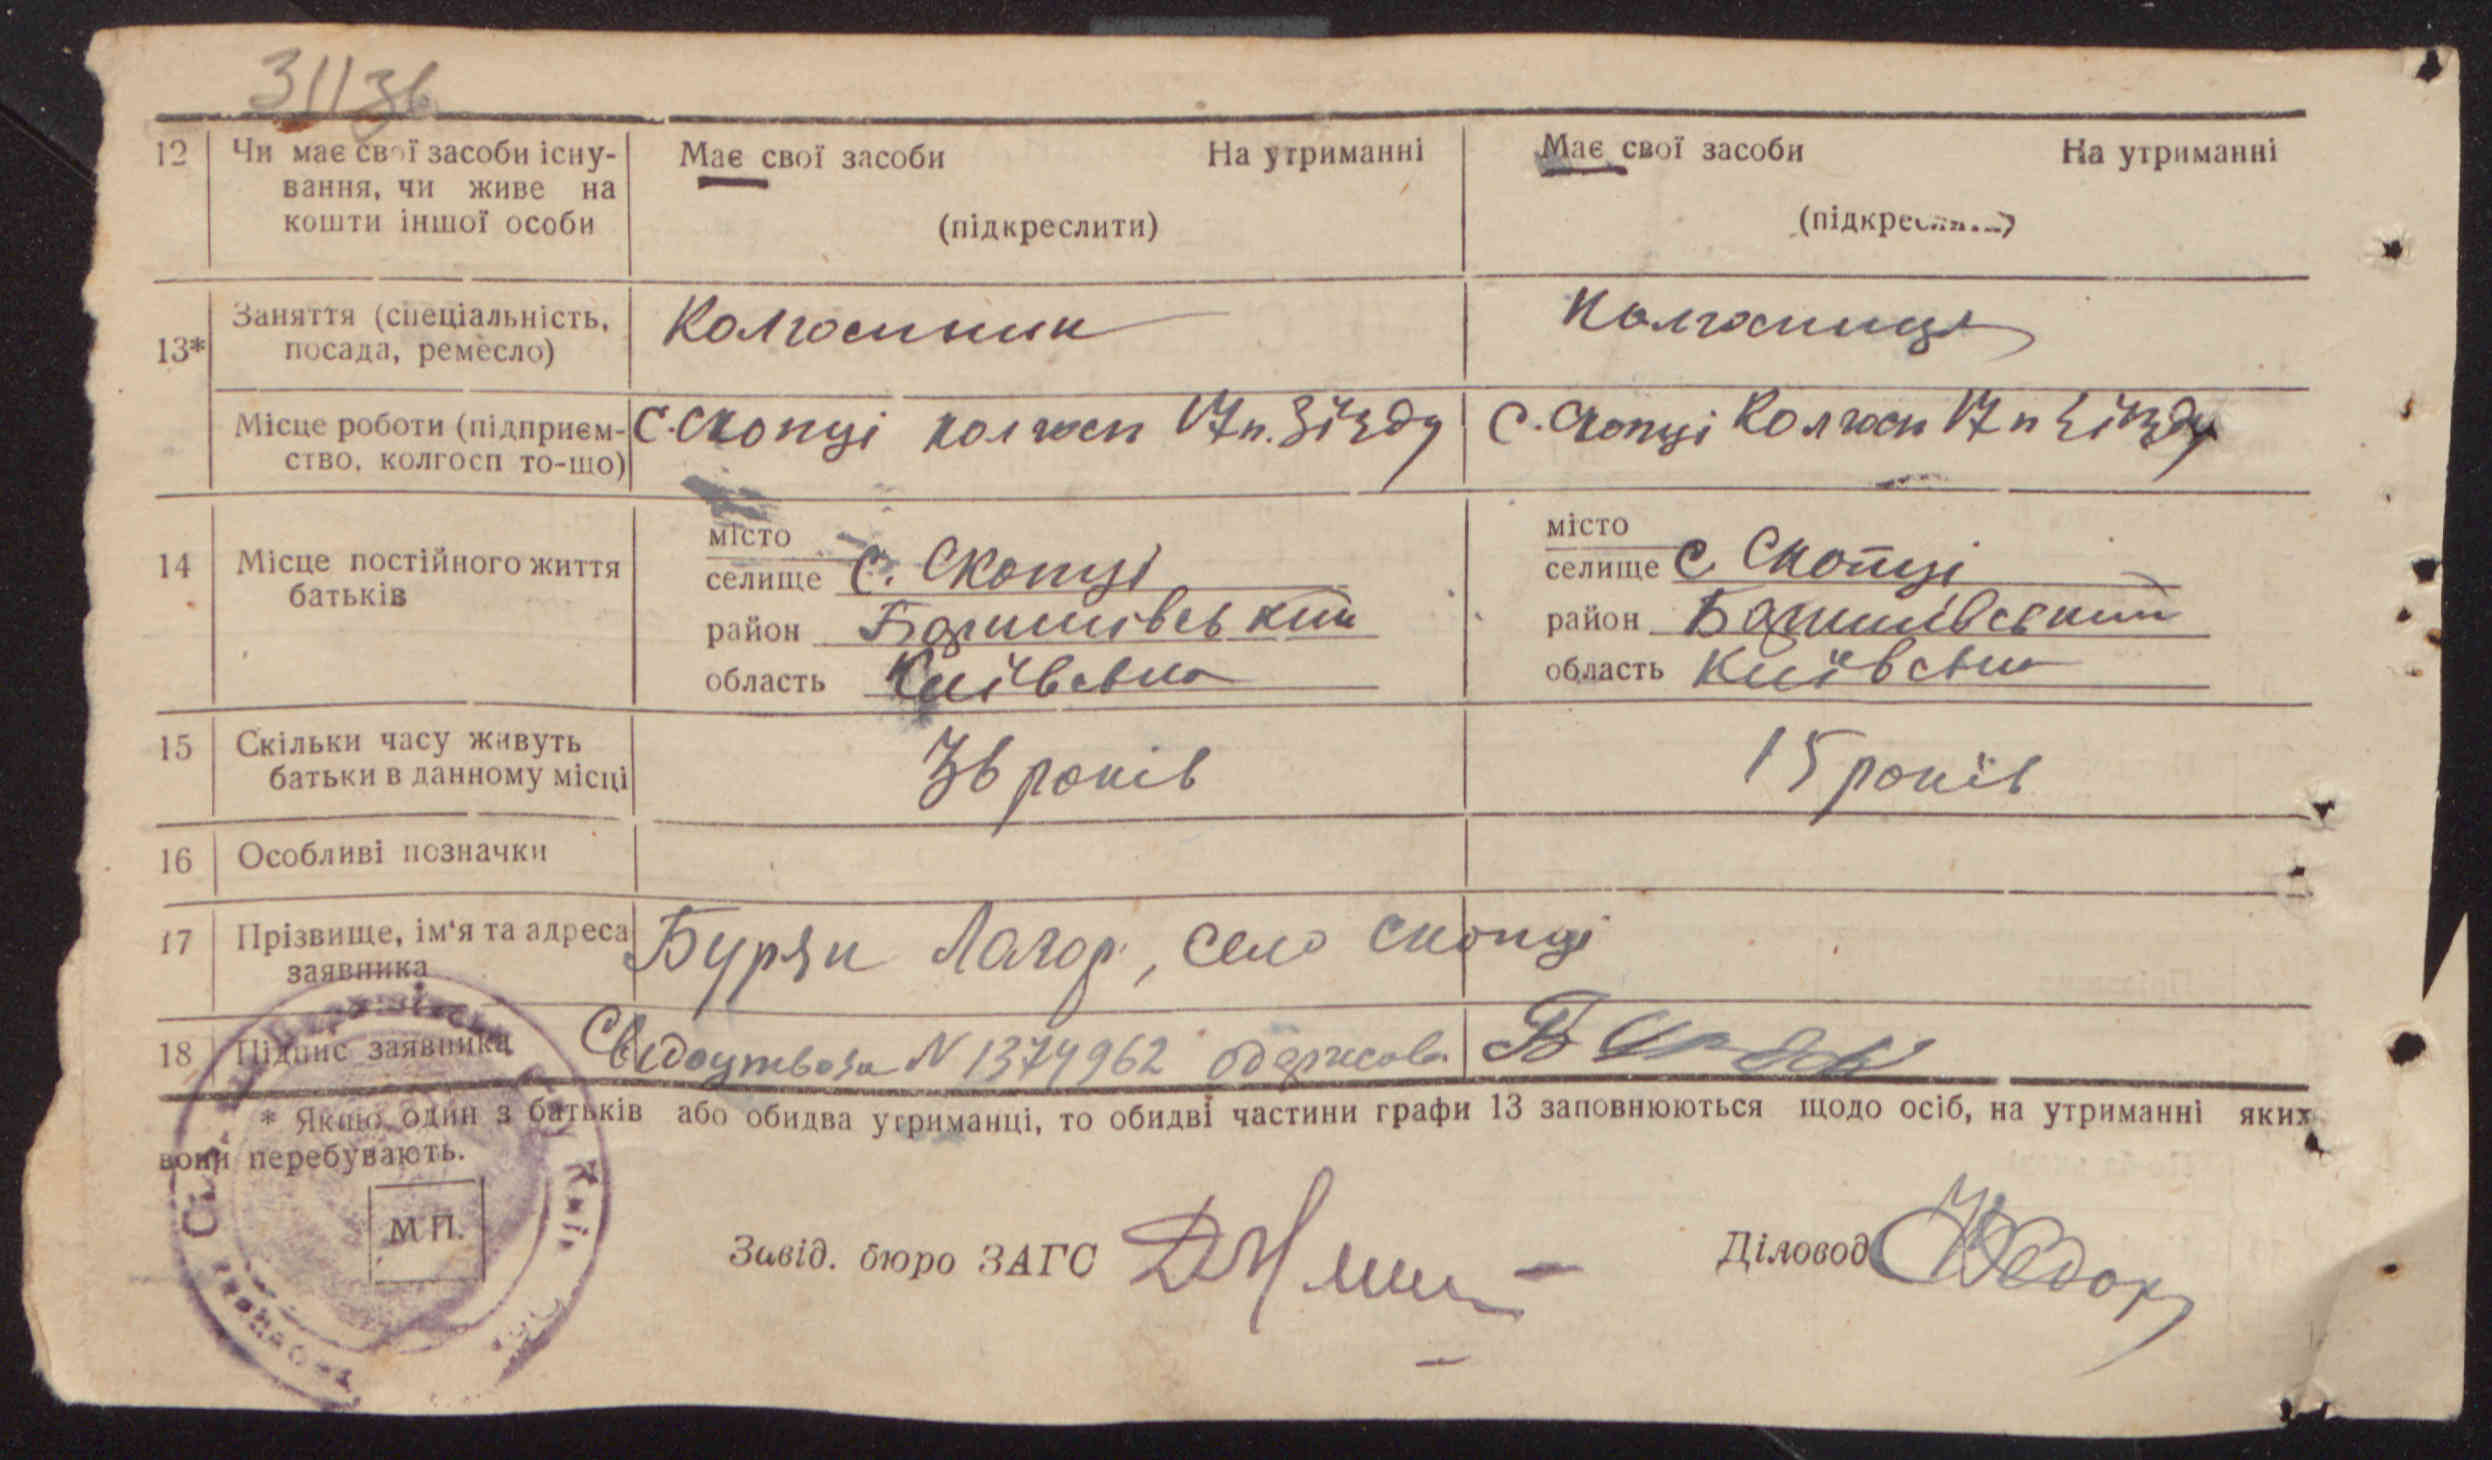 12 Чи має свої засоби існу- Має свої засоби На утриманні Має свої засоби На утриманні
вання, чи живе на
кошти іншої особи (підкреслити) (підкреслити)
13* Заняття (спеціальність, Колгоспник Колгоспниця
посада, ремесло)
Місце роботи (підприєм- С. Скопці колгосп 17 п. Зізду С. Скопці Колгосп 17 п Зізду
ство, колгосп то-що)
14 Місце постійного життя місто місто
батьків селище С. Скопці селище С. Скопці
район Баришівський район Баришівський
область Київська область Київська
15 Скільки часу живуть 36 років 15 років
батьки в данному місці
16 Особливі позначки
17 Прізвище, ім'я та адреса Буряк село Скопці
заявника
18 Підпис заявника N 1374962
* Якщо один з батьків або обидва утриманці, то обидві частини графи 13 заповнюються щодо осіб, на утриманні яких
вони перебувають.
М.П.
Завід. бюро ЗАГС Діловод